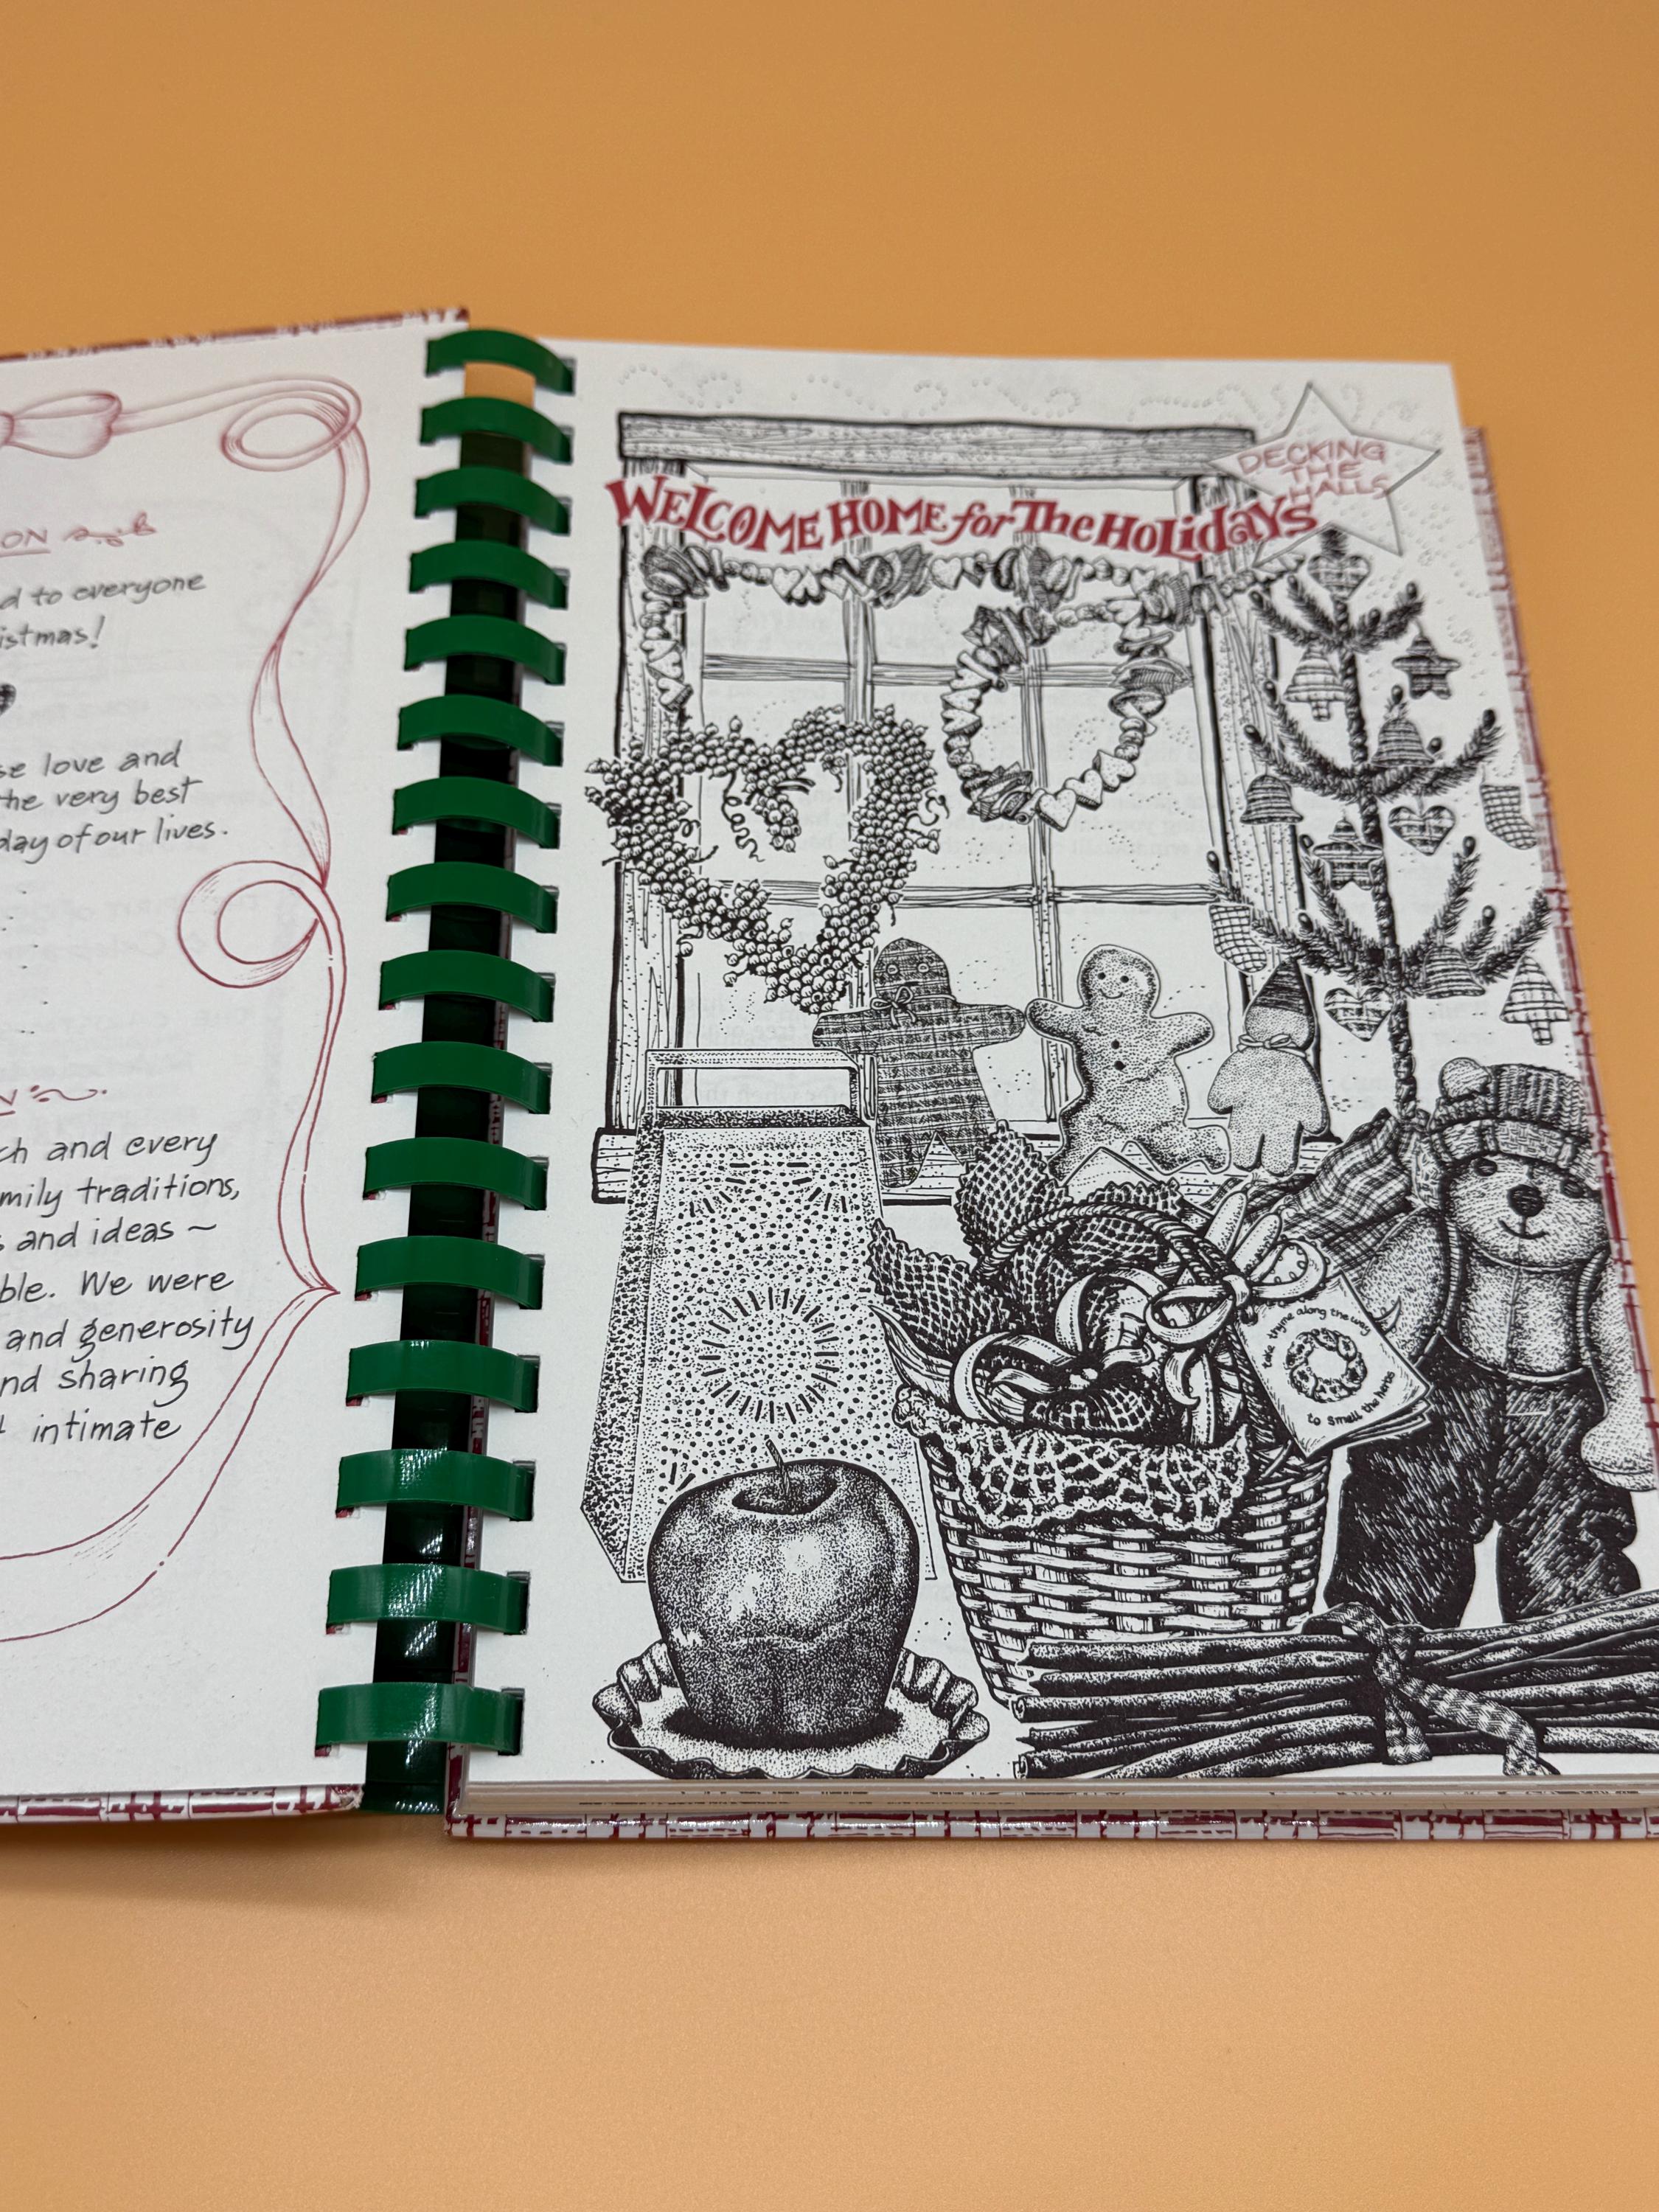 ON
d to everyone
istmas!
se love and
the very best
day of our lives.
N
ch and every
mily traditions,
s and ideas ~
ble. We were
and generosity
nd sharing
intimate
DECKING
THE
HALLS
WELCOME HOME for The HoLidaYs
take thyme along the way
to smell the herbs